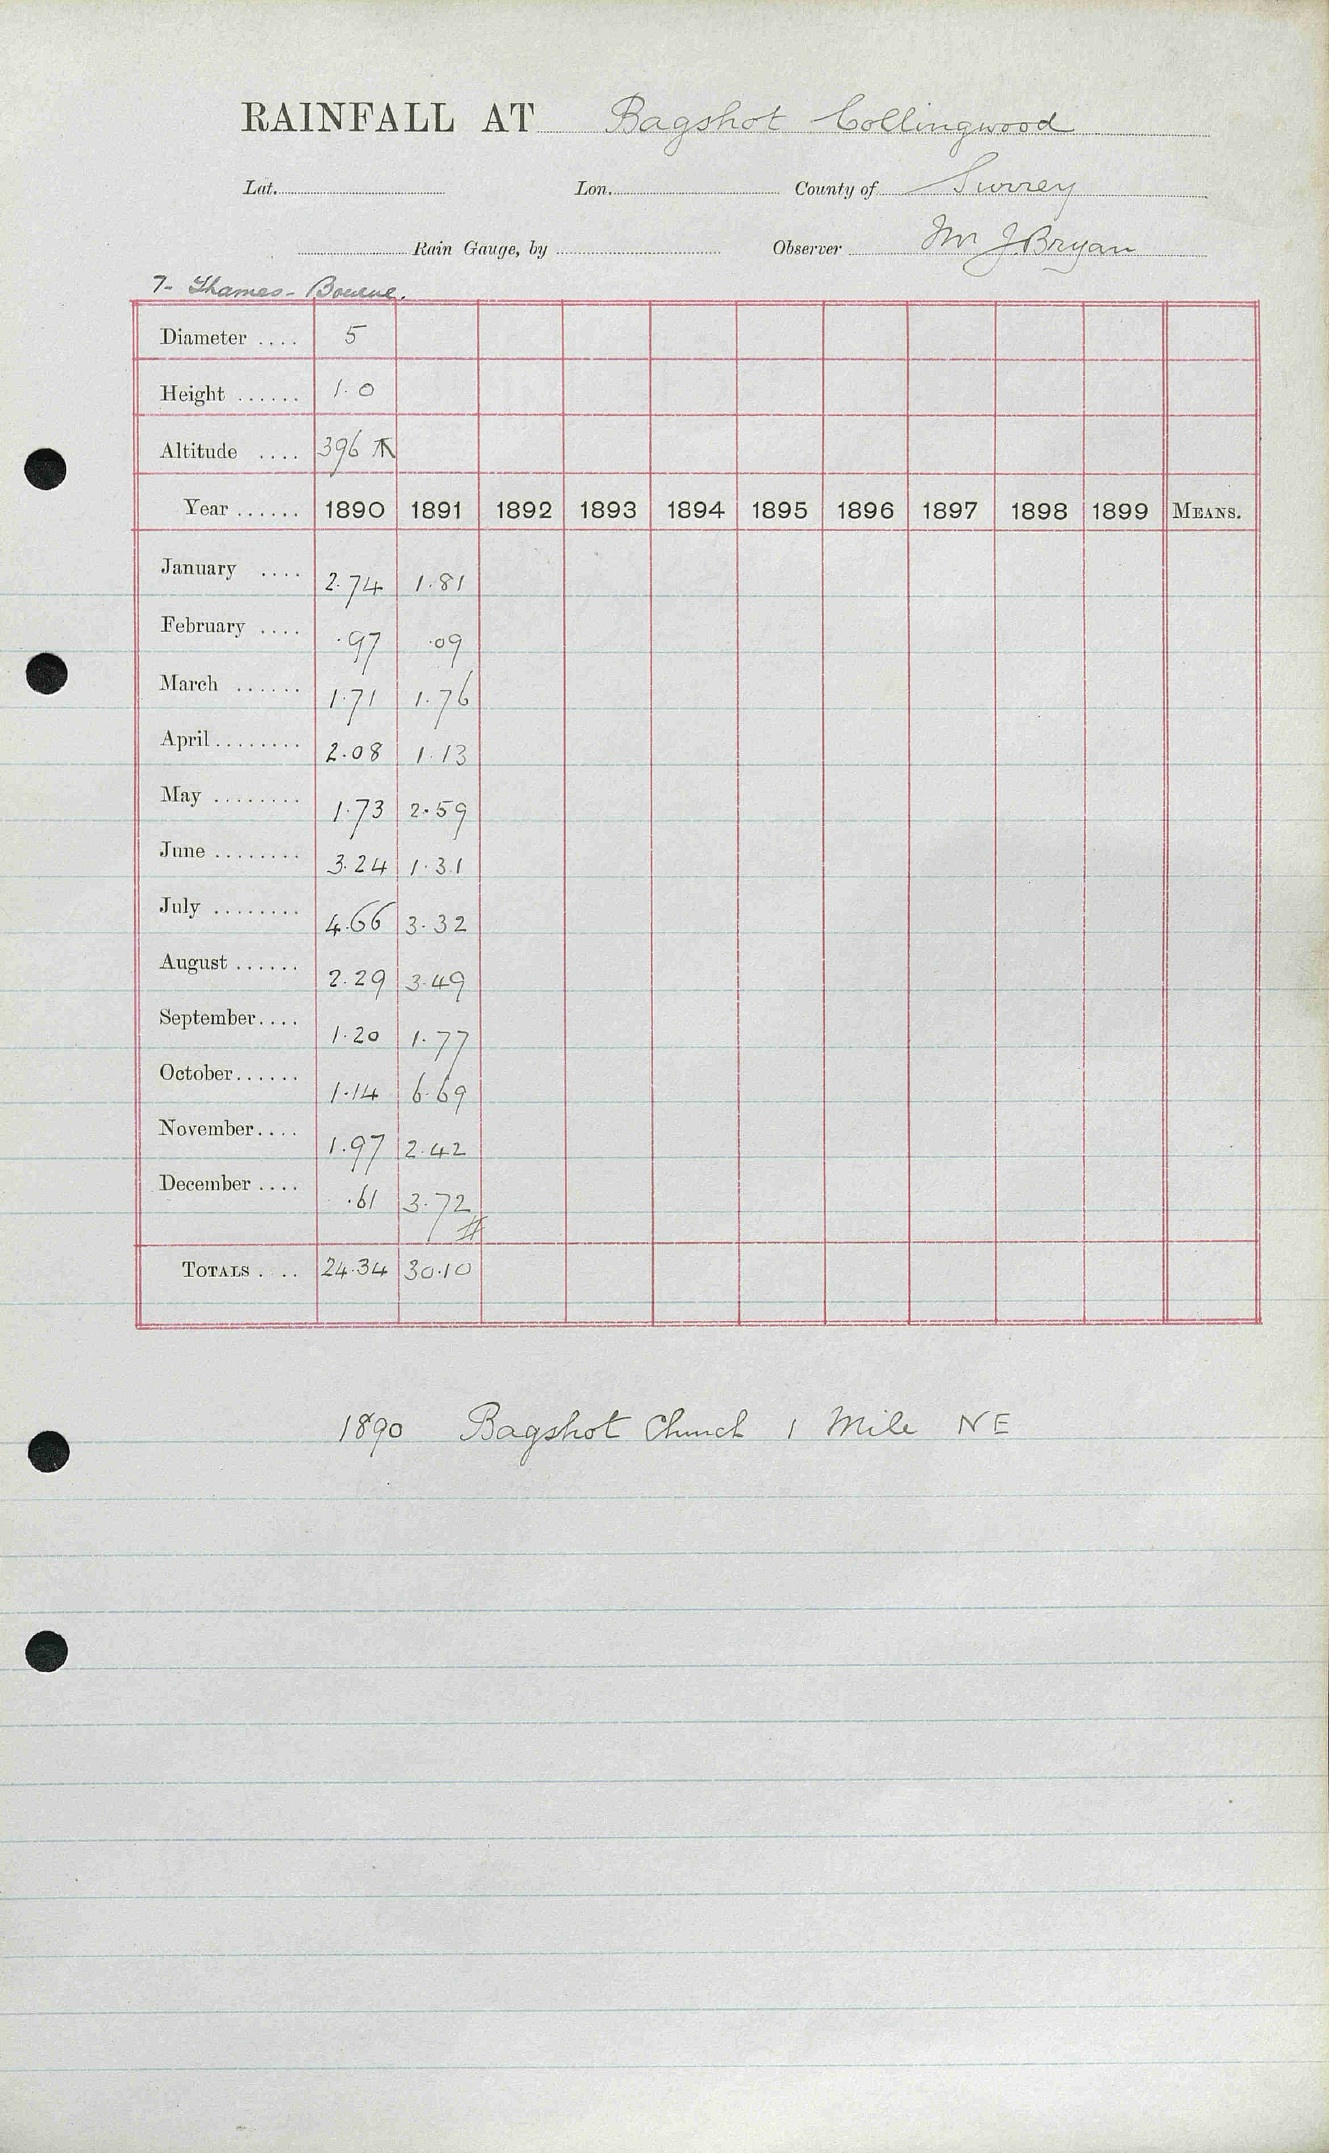 RAINFALL AT Bagshot Collingwood
Lat. Lon. County of Surrey
Rain Gauge, by Observer Mr J. Bryan
7 - Thames - Bourne.
Diameter .... 5
Height ...... 1.0
Altitude .... 396
Year ...... 1890 1891 1892 1893 1894 1895 1896 1897 1898 1899 MEANS.
January .... 2.74 1.81
February .... .97 .09
March ...... 1.71 1.76
April ........ 2.08 1.13
May ........ 1.73 2.59
June ........ 3.24 1.31
July ........ 4.66 3.32
August ...... 2.29 3.49
September .... 1.20 1.77
October ...... 1.14 6.69
November .... 1.97 2.42
December .... .61 3.72
TOTALS .... 24.34 30.10
1890 Bagshot Church 1 Mile NE